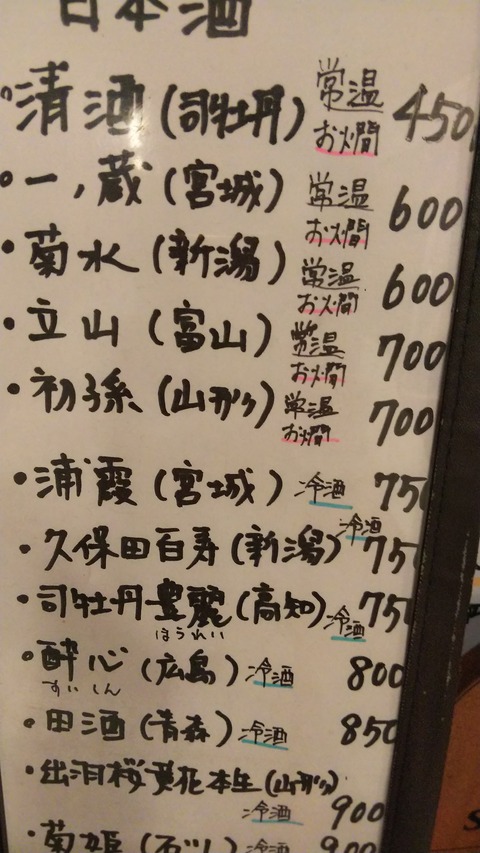 日本酒
・清酒(司牡丹) 常温 お燗 450
・一ノ蔵(宮城) 常温 お燗 600
・菊水(新潟) 常温 お燗 600
・立山(富山) 常温 お燗 700
・初孫(山形) 常温 お燗 700
・浦霞(宮城) 冷酒 750
・久保田百寿(新潟) 冷酒 750
・司牡丹豊麗(高知) 冷酒 750
ほうれい
・酔心(広島) 冷酒 800
すいしん
・田酒(青森) 冷酒 850
・出羽桜莄花本生(山形)
冷酒 900
・菊姫(石川) 冷酒 900